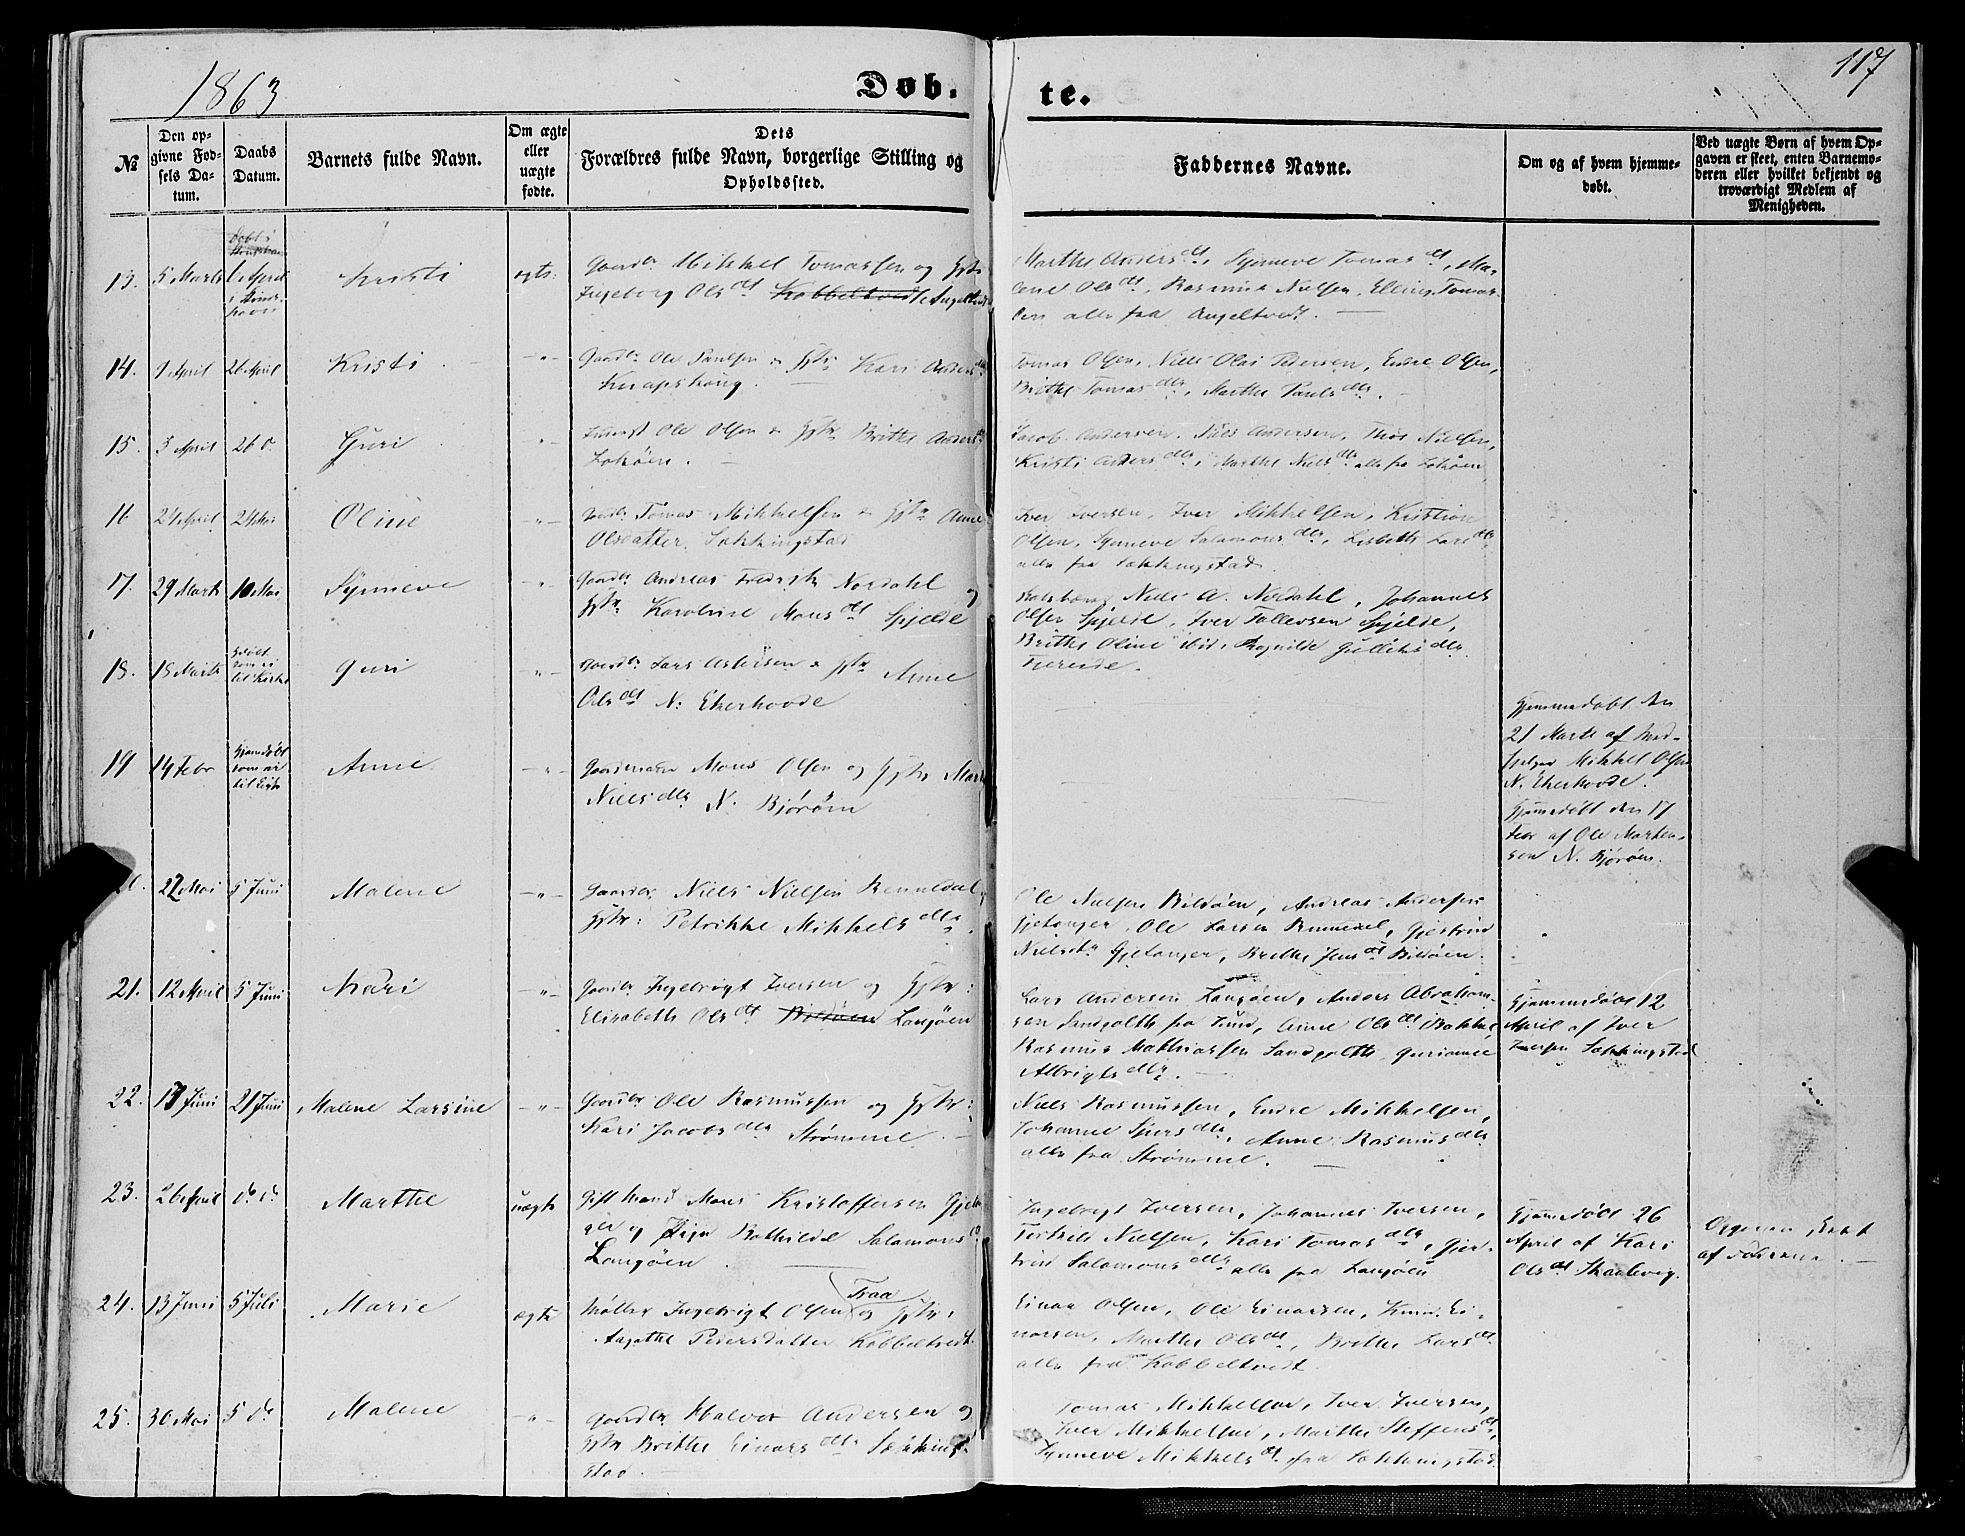 1863
Døb.
te.
117
№
Den opgivne Fødsels Datum.
Daabs Datum.
Barnets fulde Navn.
Om ægte eller uægte fødte.
Dets Forældres fulde Navn, borgerlige Stilling og Opholdssted.
Faddernes Navne.
Om og af hvem hjemmedøbt.
Ved uægte Børn af hvem Opgaven er skeet, enten Barnemoderen eller hvilket bekjendt og troværdigt Medlem af Menigheden.
13. 5 Marts 6 April Kristi egte: Gaardbr Mikkel Tomassen og Hstr
Ingeborg Olsdt Kobbeltvedt Angeltvedt
Marthe Andersdt, Synneve Tomasdt, Ma-
lene Olsdt, Rasmus Nielsen, Elling Tomas-
sen alle fra Angeltvedt.
14. 1 April 26 April Kristi -"- Gaardbr Ole Paulsen & Hstr Kari Andersdtr
Knapskoug.
Tomas Olsen, Niels Olai Pedersen, Endre Olsen,
Brithe Tomasdtr, Marthe Paulsdtr.
15. 3 April 26 d. Guri " Ole Olsen & Hstr Brithe Andersdtr
Lokøen.
Jacob Andersen, Niels Andersen, Thos Nielsen,
Kristi Andersdtr, Marthe Nielsdtr alle fra Lokøen
16 24 April 24 Mai Oline -"- Gaardbr Tomas Mikkelsen & Hstr Anne
Olsdatter Sekkingstad
Iver Iversen, Iver Mikkelsen, Kristian
Olsen, Synneve Salamonsdtr, Lisbeth Larsdtr
alle fra Sekkingstad
17. 29 Marts 10 Mai Synneve " Gaardbr Andreas Fredrik Nordahl og
Hstr Karoline Monsdt Spjelde
Niels A. Nordahl, Johannes
Olsen Spjelde, Iver Tollevsen Spjelde,
Brithe Oline ibid, Ragnilde Gulleiksdtr
18. 18 Marts Guri -"- Gaardbr Lars Astersen & Hstr Anne
Olsdt N. Ekerhovde
Hjemmedøbt den
21 Marts af
Mikkel Olsen
N. Ekerhovde.
19 14 Febr Anne -"- Gaardmand Mons Olsen og Hstr Mar
Nielsdtr N. Bjørøen
Hjemmedøbt den 17
Febr af Ole Marten-
sen N. Bjørøen.
20. 22 Mai 5 Juni Malene -"- Gaardbr Niels Nielsen Renneldal
Hstr: Petrikke Mikkelsdtr.
Ole Nielsen Bildøen, Andreas Andersen
Gjetanger, Ole Larsen Renneldal, Gjertrud
Nielsdtr Gjetanger, Brithe Jensdt Bildøen.
21. 12 April 5 Juni Kari -"- Gaardbr Ingebrigt Iversen og Hstr:
Elisabeth Olsdt Bildøen Langøen
Lars Andersen Langøen, Anders Abraham-
sen Landgolth fra Sund, Anne Olsdt Bakke
Rasmus Mathiassen Sandgolth, Guriane
Albrigtsdtr.
Hjemmedøbt 12
April af Iver
Iversen Sekkingstad
22. 17 Juni 21 Juni Malene Larsine -"- Gaardbr Ole Rasmussen og Hstr:
Kari Jacobsdtr Strømme.
Niels Rasmussen, Endre Mikkelsen,
Johanne Sjursdtr, Anne Rasmusdtr
alle fra Strømme.
23. 26 April do do Marthe uægte Gift Mand Mons Kristoffersen Gjetan-
ger og Pige Bothilde Salamonsdt
Langøen.
Ingebrigt Iversen, Johannes Iversen,
Torkild Nielsen, Kari Tomasdtr, Gjer-
trud Salamonsdtr alle fra Langøen
Hjemmedøbt 26
April af Kari
Olsdt Skaalevig.
Opgaven skeet
af Faderen.
24. 13 Juni 5 Juli Marie ægte Møller Ingebrigt Olsen Traa og Hstr:
Aagothe Pedersdatter Kobbeltvedt.
Einar Olsen, Ole Einarsen, Knud Ei-
narsen, Marthe Olsdt, Brithe Larsdt
alle fra Kobbeltvedt.
25. 30 Mai 5 do Malene -"- Gaardbr Halvor Andersen og
Hstr Brithe Einarsdtr Sekking-
stad.
Tomas Mikkelsen, Iver Iversen,
Iver Mikkelsen, Marthe Steffensdt,
Synneve Mikkelsdt fra Sekkingstad.